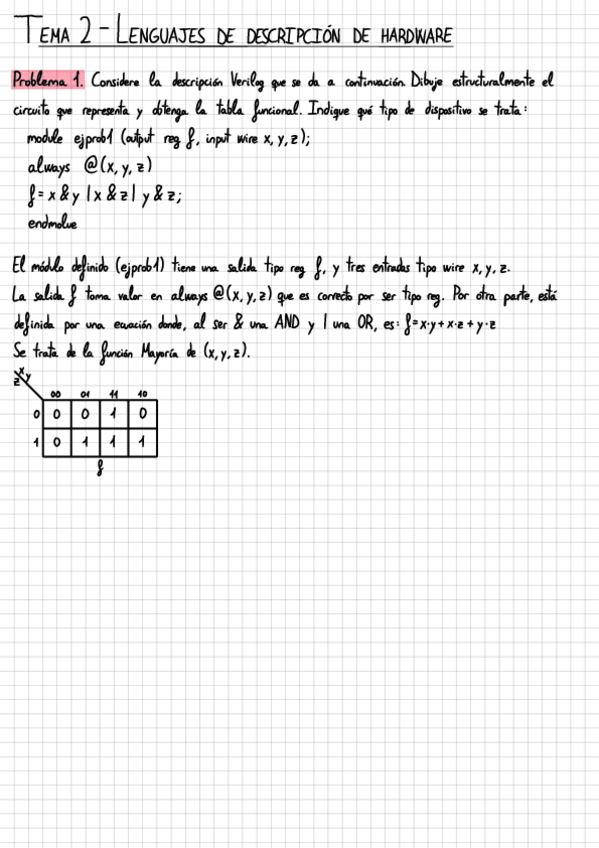 TEMA 2 - LENGUAJES DE DESCRIPCIÓN DE HARDWARE
Problema 1. Considere la descripción Verilog que se da a continuación. Dibuje estructuralmente el
circuito que representa y obtenga la tabla funcional. Indique qué tipo de dispositivo se trata:
module ejprob1 (output reg f, input wire x, y, z);
always @(x, y, z)
f = x & y | x & z | y & z;
endmolue
El módulo definido (ejprob1) tiene una salida tipo reg f, y tres entradas tipo wire x, y, z.
La salida f toma valor en always @(x, y, z) que es correcto por ser tipo reg. Por otra parte, está
definida por una ecuación donde, al ser & una AND y | una OR, es: f=x·y+x·z+y·z
Se trata de la función Mayoría de (x, y, z).
xy
z
00 01 11 10
0 0 0 1 0
1 0 1 1 1
f